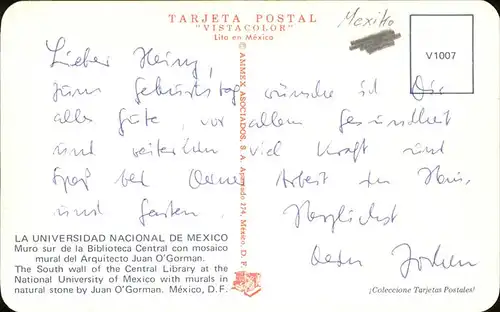 TARJETA POSTAL
"VISTACOLOR"
Lito en México
Mexiko
V1007
Lieber Heinz,
zum Geburtstag wünsche ich Dir
alles Gute, vor allem Gesundheit
und weiterhin viel Kraft und
Spaß bei Deiner Arbeit in Haus,
und Garten.
Herzlichst
Dein Jochen
© AMMEX ASOCIADOS, S. A. Apartado 174, México, D. F.
LA UNIVERSIDAD NACIONAL DE MEXICO
Muro sur de la Biblioteca Central con mosaico
mural del Arquitecto Juan O'Gorman.
The South wall of the Central Library at the
National University of Mexico with murals in
natural stone by Juan O'Gorman. México, D.F.
¡Coleccione Tarjetas Postales!